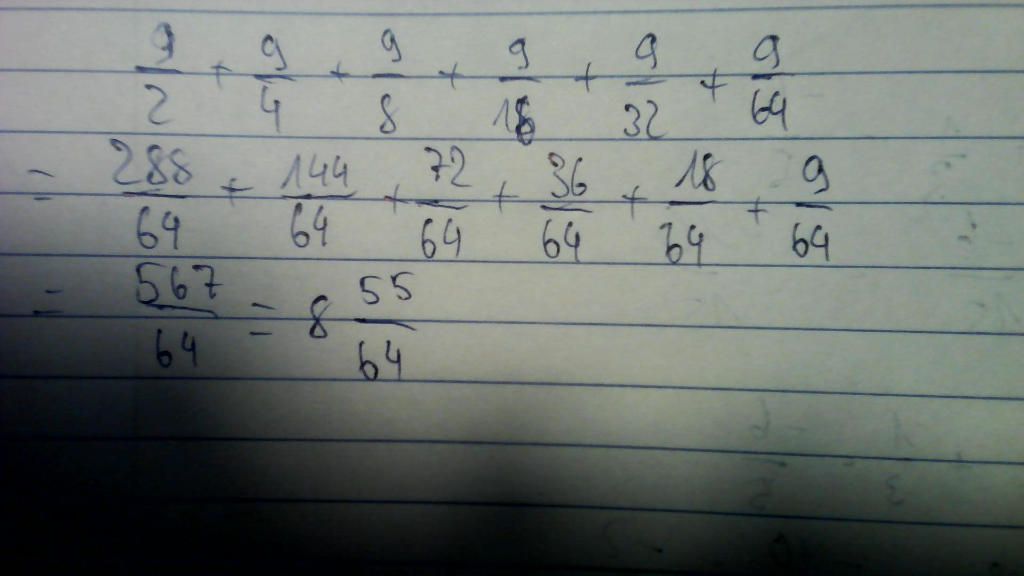 9/2 + 9/4 + 9/8 + 9/16 + 9/32 + 9/64
= 288/64 + 144/64 + 72/64 + 36/64 + 18/64 + 9/64
= 567/64 = 8 55/64